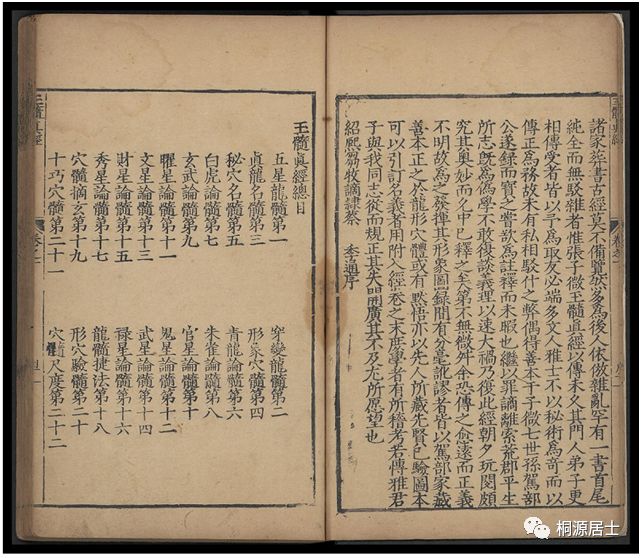 玉髓真經
諸家葬書古經莫不備覽然多為後人依倣雜亂罕有一書首尾
純全而無駁雜者惟張子微玉髓真經以傳未久其門人弟子更
相傳受者皆以予為取友必端多文人雅士不以秘術為奇而以
傳正為務故未有私相駁什之弊偶得善本于子微七世孫駕部
公遂録而寶之嘗欲為註釋而未暇也繼以罪謫離索荒郡平生
所志既為偽學不敢復談義理以速大禍乃復此經朝夕玩閱頗
究其奧妙而名中已釋之矣第不無微舛恐傳之愈遠而正義
不明故為之發揮其形象圖録間有分毫訛謬者皆以駕部家藏
善本正之於龍形穴體或有默悟亦以先人所藏先賢已驗圖本
可以引訂名義者用附入經卷之末庶學者有所稽考若傳雅君
子與我同志從而規正其失開廣其不及尤所愿望也
紹熙芻牧謫隷蔡 季通序
玉髓真經總目
五星龍髓第一 穿變龍髓第二
貞龍名髓第三 形象穴髓第四
秘穴名髓第五 青龍論髓第六
白虎論髓第七 朱雀論髓第八
玄武論髓第九 官星論髓第十
曜星論髓第十一 鬼星論髓第十二
文星論髓第十三 武星論髓第十四
財星論髓第十五 祿星論髓第十六
秀星論髓第十七 龍髓捷法第十八
穴髓摘玄第十九 形穴驗髓第二十
十巧穴髓第二十一 穴髓尺度第二十二
玉髓真經
桐源居士